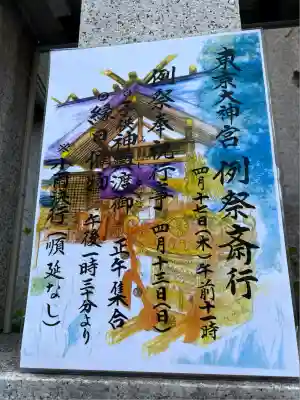 東京大神宮 例祭斎行
四月十七日(木)午前十一時
例祭奉祝行事 四月十三日(日)
神輿渡御 正午集合
縁日 午後一時三十分より
決行(順延なし)